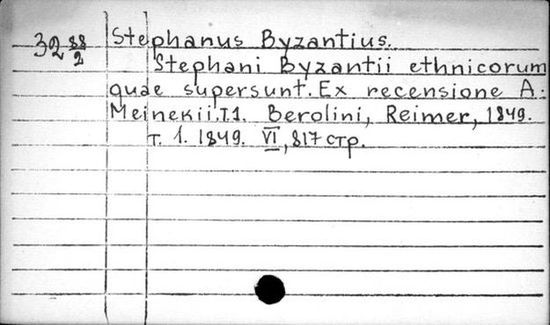 32 88/2
Stephanus Byzantius.
Stephani Byzantii ethnicorum
quae supersunt. Ex recensione A.
Meinekii. T.1. Berolini, Reimer, 1849.
т. 1. 1849. VI, 817 стр.